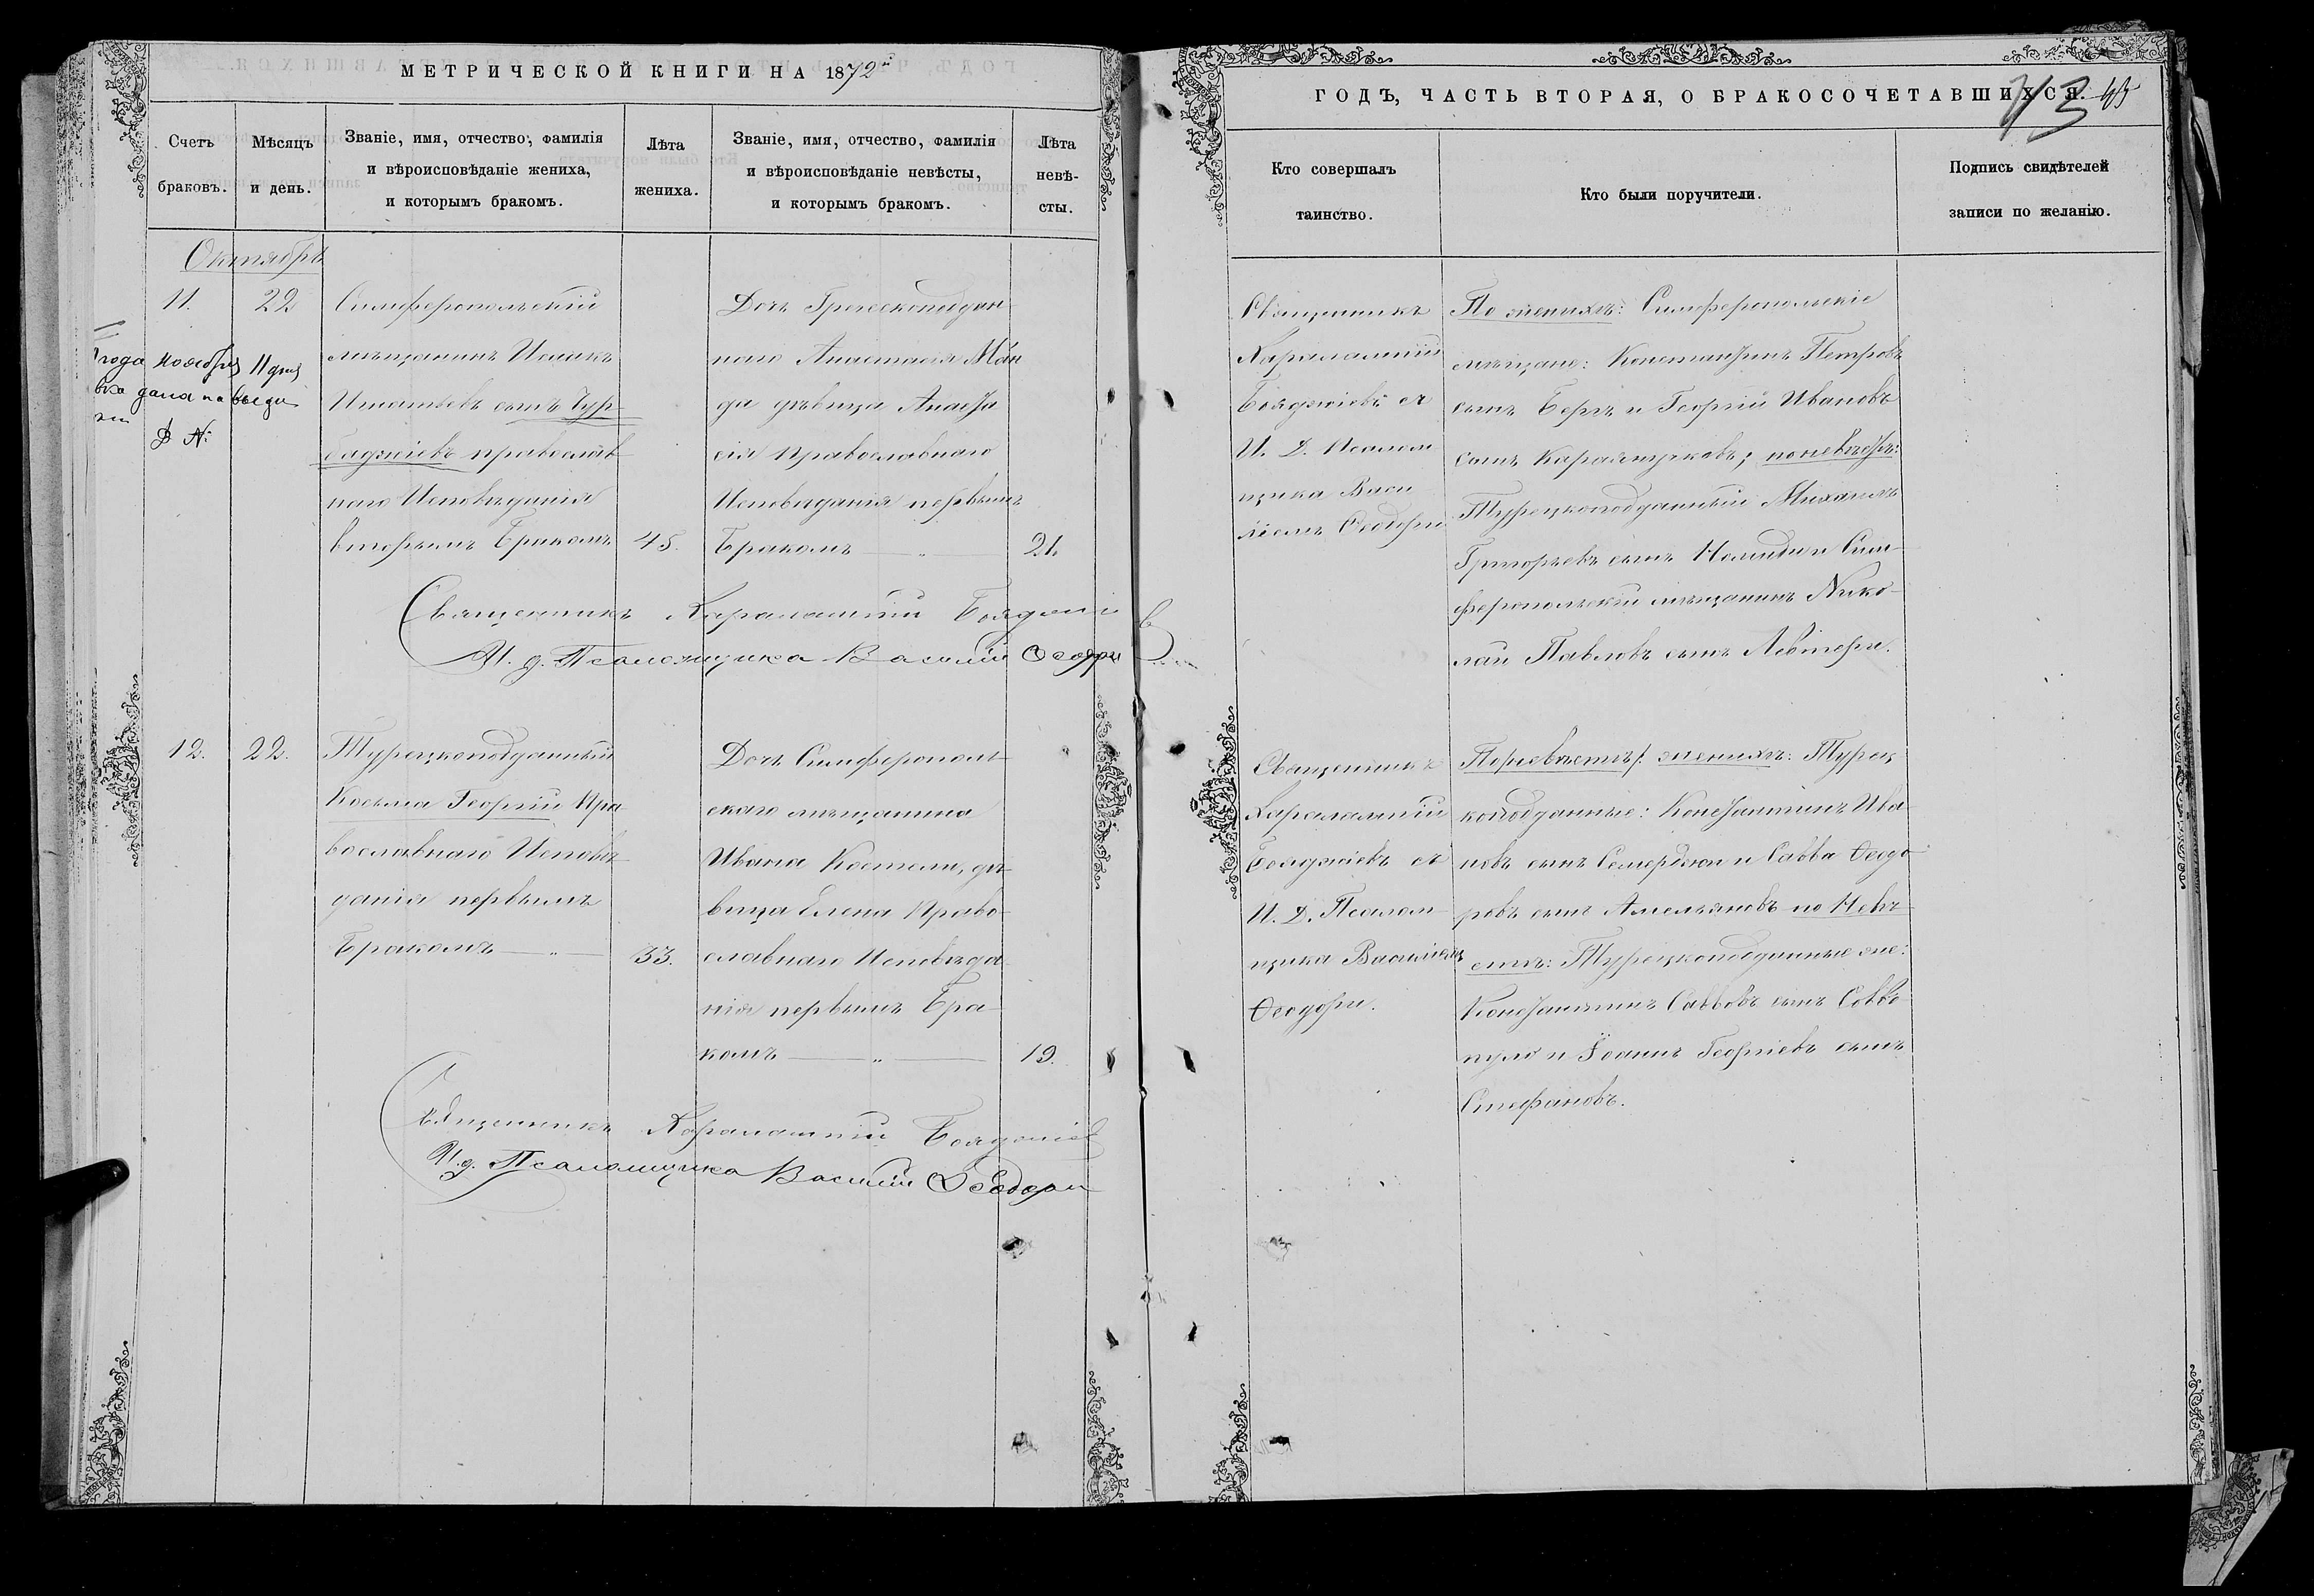 МЕТРИЧЕСКОЙ КНИГИ НА 1872й
Счетъ браковъ.
Мѣсяцъ и день.
Званіе, имя, отчество, фамилія
и вѣроисповѣданіе жениха,
и которымъ бракомъ.
Лѣта
жениха.
Званіе, имя, отчество, фамилія
и вѣроисповѣданіе невѣсты,
и которымъ бракомъ.
Лѣта
невѣ-
сты.
Октябрь
11.
22
Симферопольскій
мѣщанинъ Исаакъ
Игнатьевъ сынъ Чур-
баджіевъ православ-
наго Исповѣданія
вторымъ Бракомъ
45.
Дочь Греческоподан-
наго Анастасія Ман
ди дѣвица Анаста
сія Православнаго
Исповѣданія первымъ
Бракомъ — „ —
21.
года ноября 11 дня
дана
№
Священникъ Харалампій Бояджіевъ
И. д. Псаломщика Василій Феодори
12.
22.
Турецкоподданный
Косьма Георгій Пра-
вославнаго Исповѣ-
данія первымъ
Бракомъ — „ —
33.
Дочь Симферополь-
скаго мѣщанина
Ивана Костели, дѣ-
вица Елена Право-
славнаго Исповѣда-
нія первымъ Бра-
комъ — „ —
19.
Священникъ Харалампій Бояджіев
И. д. Псаломщика Василій Ѳеодори
ГОДЪ, ЧАСТЬ ВТОРАЯ, О БРАКОСОЧЕТАВШИХСЯ.
43
Кто совершалъ
таинство.
Кто были поручители.
Подпись свидѣтелей
записи по желанію.
Священникъ
Харалампій
Бояджіевъ съ
И. Д. Псалом
щика Васи
ліемъ Ѳеодори
По женихѣ: Симферопольскіе
мѣщане: Константинъ Петровъ
сынъ Бергъ и Георгій Ивановъ
сынъ Караямурковъ; по невѣстѣ:
Турецкоподданный Михаилъ
Григорьевъ сынъ и Сим-
феропольскій мѣщанинъ Нико-
лай Павловъ сынъ Левтери.
Священникъ
Харалампій
Бояджіевъ съ
И. Д. Псалом-
щика Василіемъ
Ѳеодори.
женихѣ: Турец
коподданные: Константинъ Ива-
новъ сынъ Семерджи и Савва Ѳеодо-
ровъ сынъ Амельяновъ по Невѣ-
стѣ: Турецкоподданные же:
Константинъ Саввовъ сынъ Савво
пуло и Іоаннъ Георгіевъ сынъ
Стефановъ.